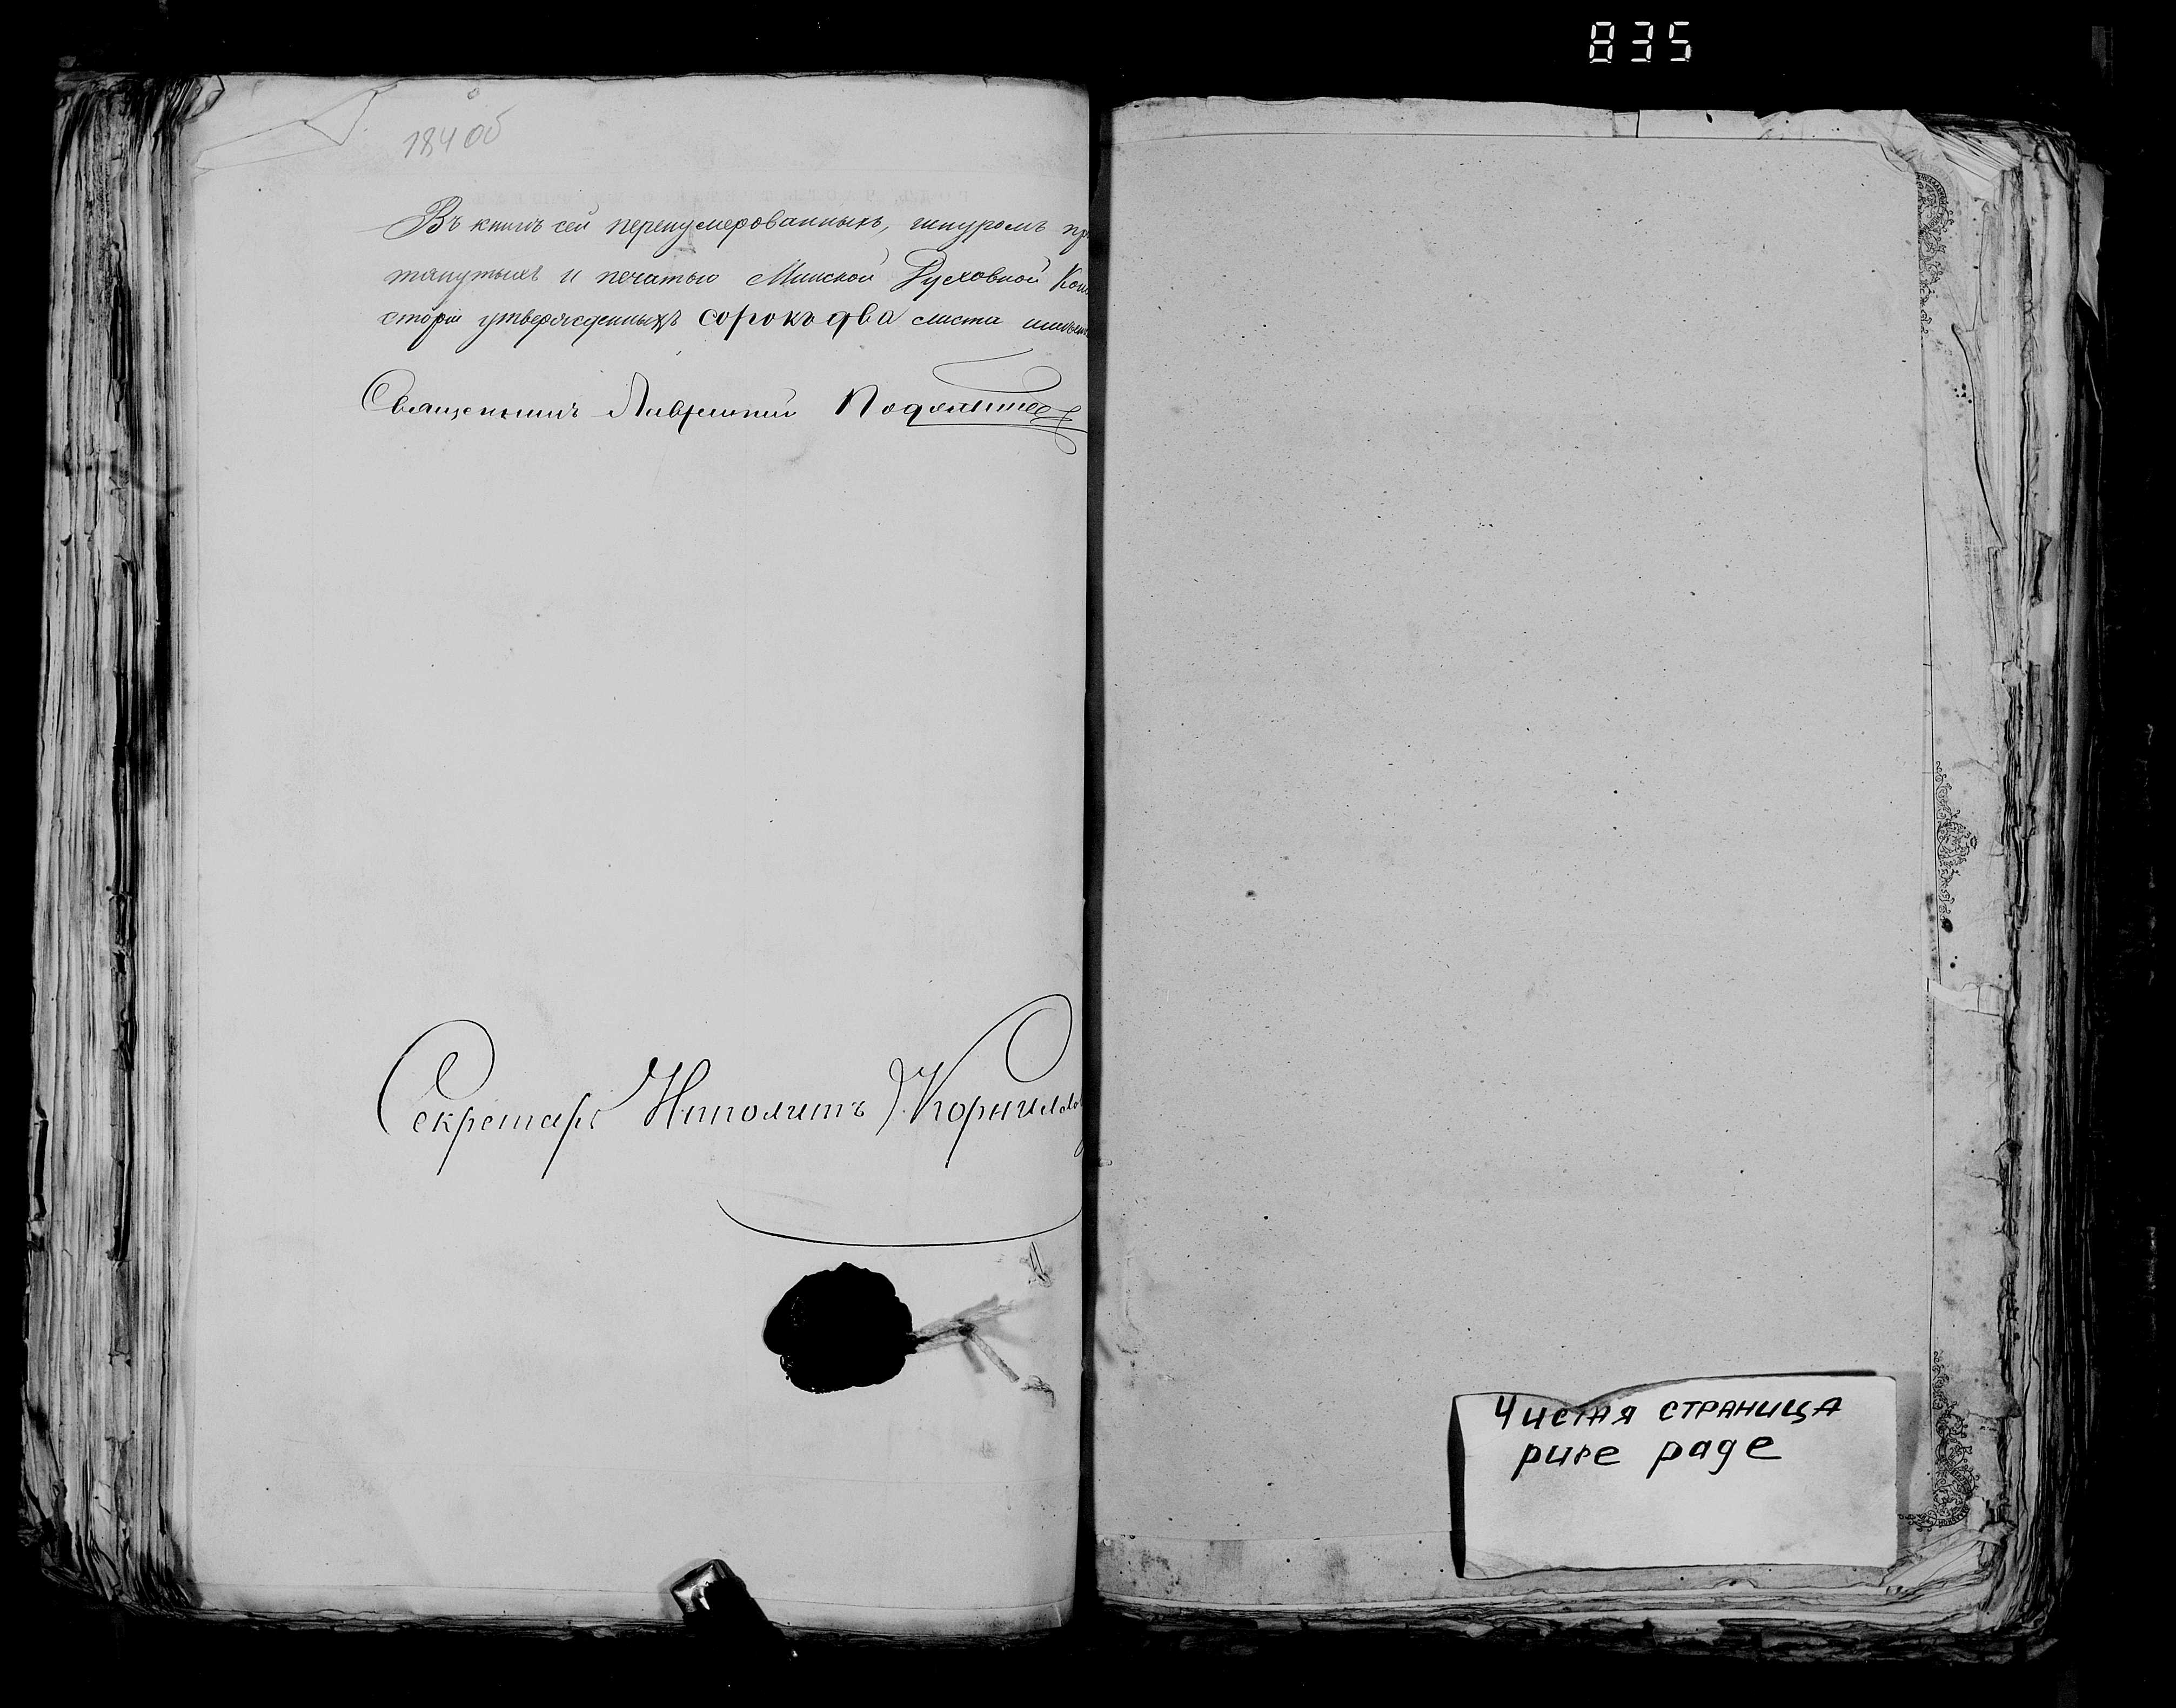 835
184 об
Въ книгѣ сей перенумерованныхъ, шнуромъ пр
тянутыхъ и печатью Минской Духовной Кон
сторіи утвержденныхъ сорокъ два листа
Священникъ
Секретарь Ипполитъ Корнилов
Чистая страница
pure page